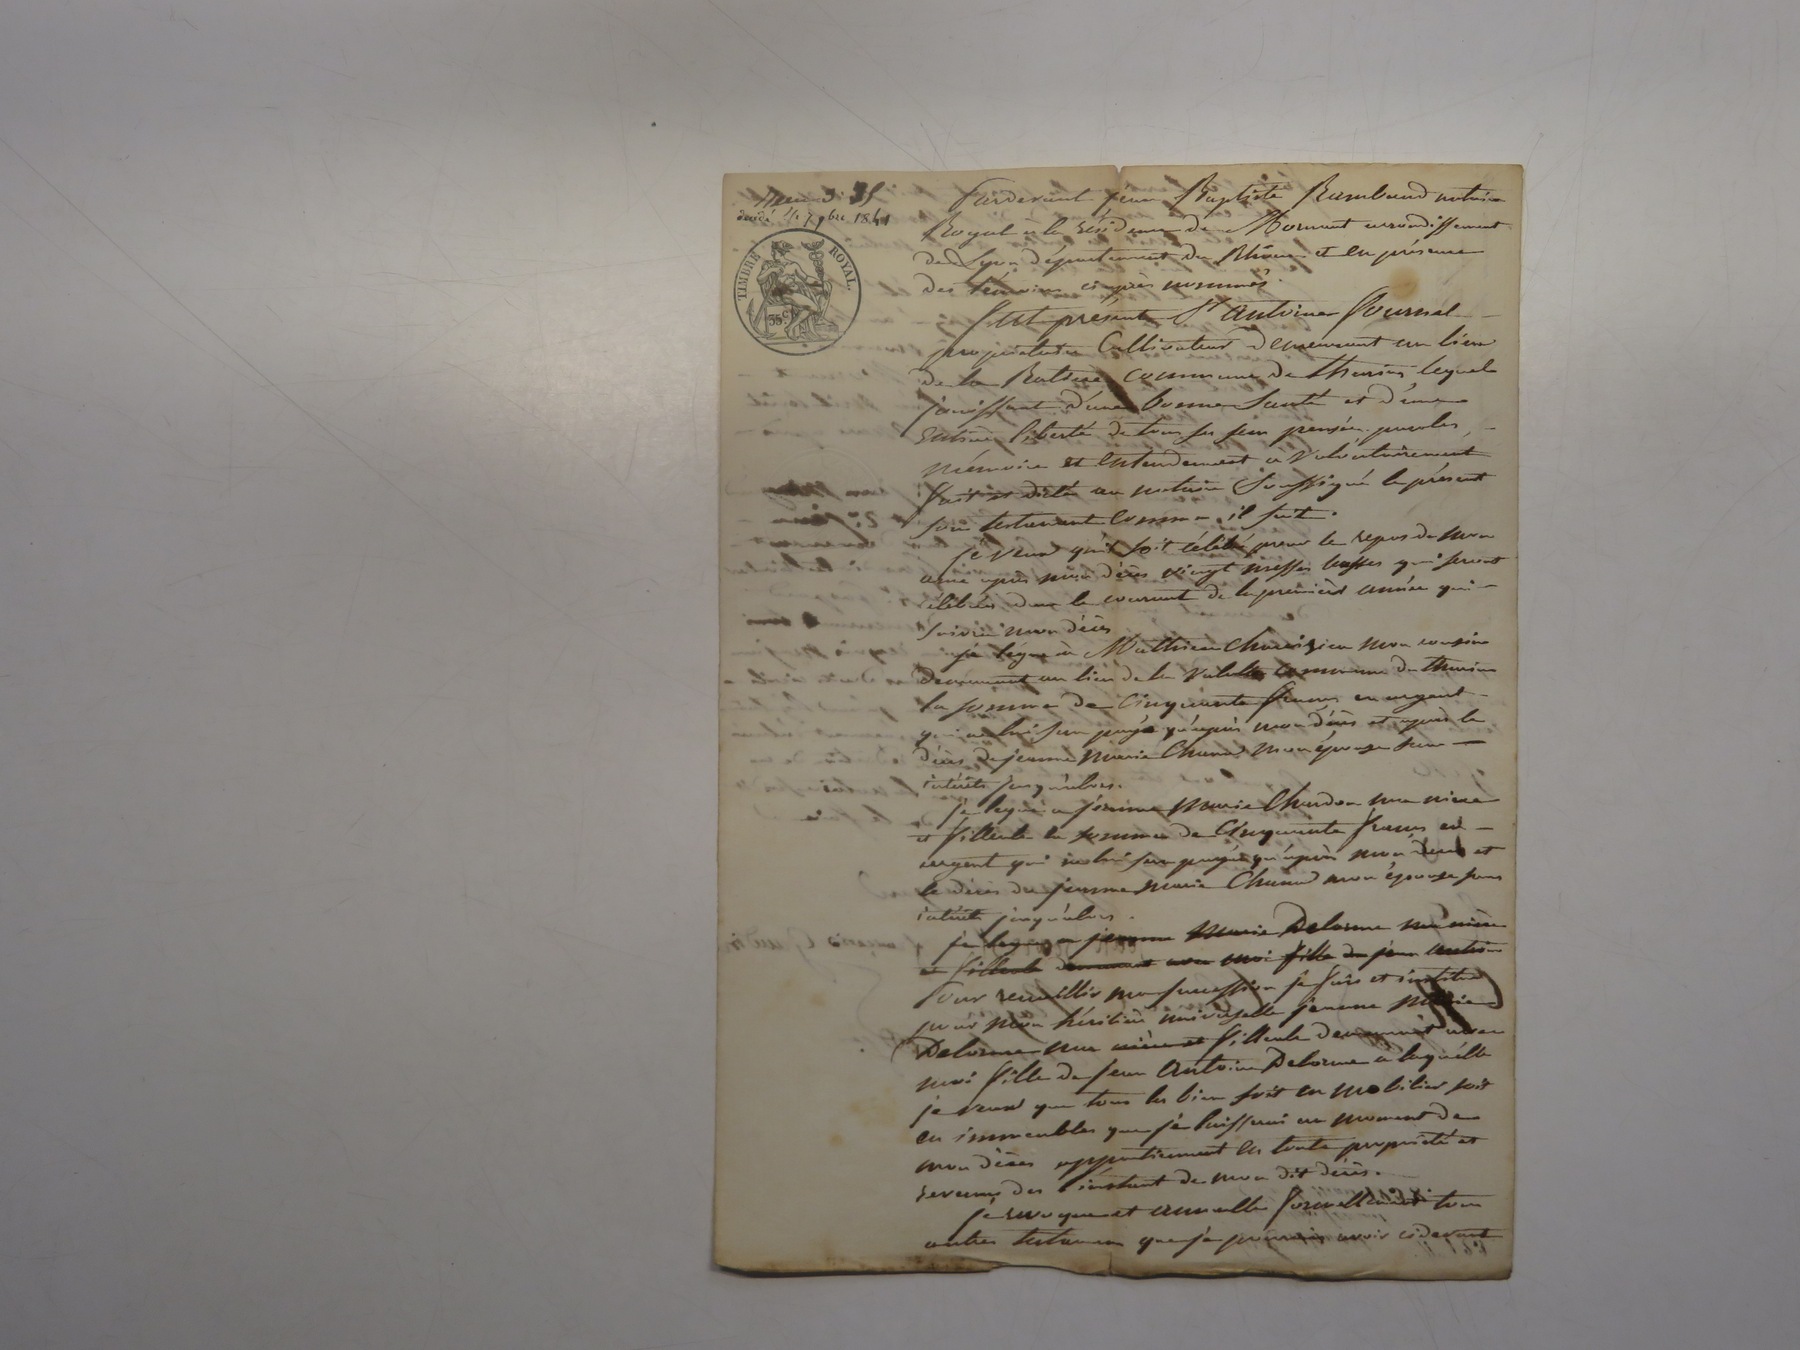 décédé le 7 9bre 1841
TIMBRE ROYAL.
35c
Pardevant jean Baptiste Rambaud notaire
Royal a la résidence de Mornant arrondissement
de Lyon département du Rhône et en présence
des témoins ci après nommés.
fut présent Sr Antoine Journel
propriétaire Cultivateur demeurant au lieu
de la commune de thurins lequel
jouissant d'une bonne Santé et d'une
entière liberté de tous ses sens pensée paroles,
mémoire et entendement a volontairement
fait et dicté au notaire Soussigné le présent
son testament comme il suit.
je veux qu'il soit célébré pour le repos de mon
ame après mon décès vingt messes basses qui seront
célébrées dans le courant de la première année qui
suivra mon décès
je legue a Mathieu mon cousin
demeurant au lieu de la Valette commune de thurins
la somme de Cinquante francs en argent
qui ne lui sera payée qu'après mon décès et après le
décès de jeanne Marie Chanud mon épouse sans
intérêts jusqu'alors.
je legue a jeanne Marie Chardon ma niece
et filleule la somme de Cinquante francs en
argent qui ne lui sera payée qu'après mon décès et
le décès de jeanne marie Chanud mon épouse sans
intérêts jusqu'alors.
je legue a jeanne Marie Delorme ma nièce
et filleule demeurant avec moi fille de jean antoine
Pour recueillir ma succession je fais et institue
pour mon héritière universelle jeanne Marie
Delorme ma nièce et filleule demeurant avec
moi fille de jean Antoine Delorme a laquelle
je veux que tous les bien soit en mobilier soit
en immeubles que je laisserai au moment de
mon décès appartiennent en toute propriété et
revenus des l'instant de mon dit décès.
je revoque et annulle formellement tous
autres testamens que je pourrais avoir cidevant